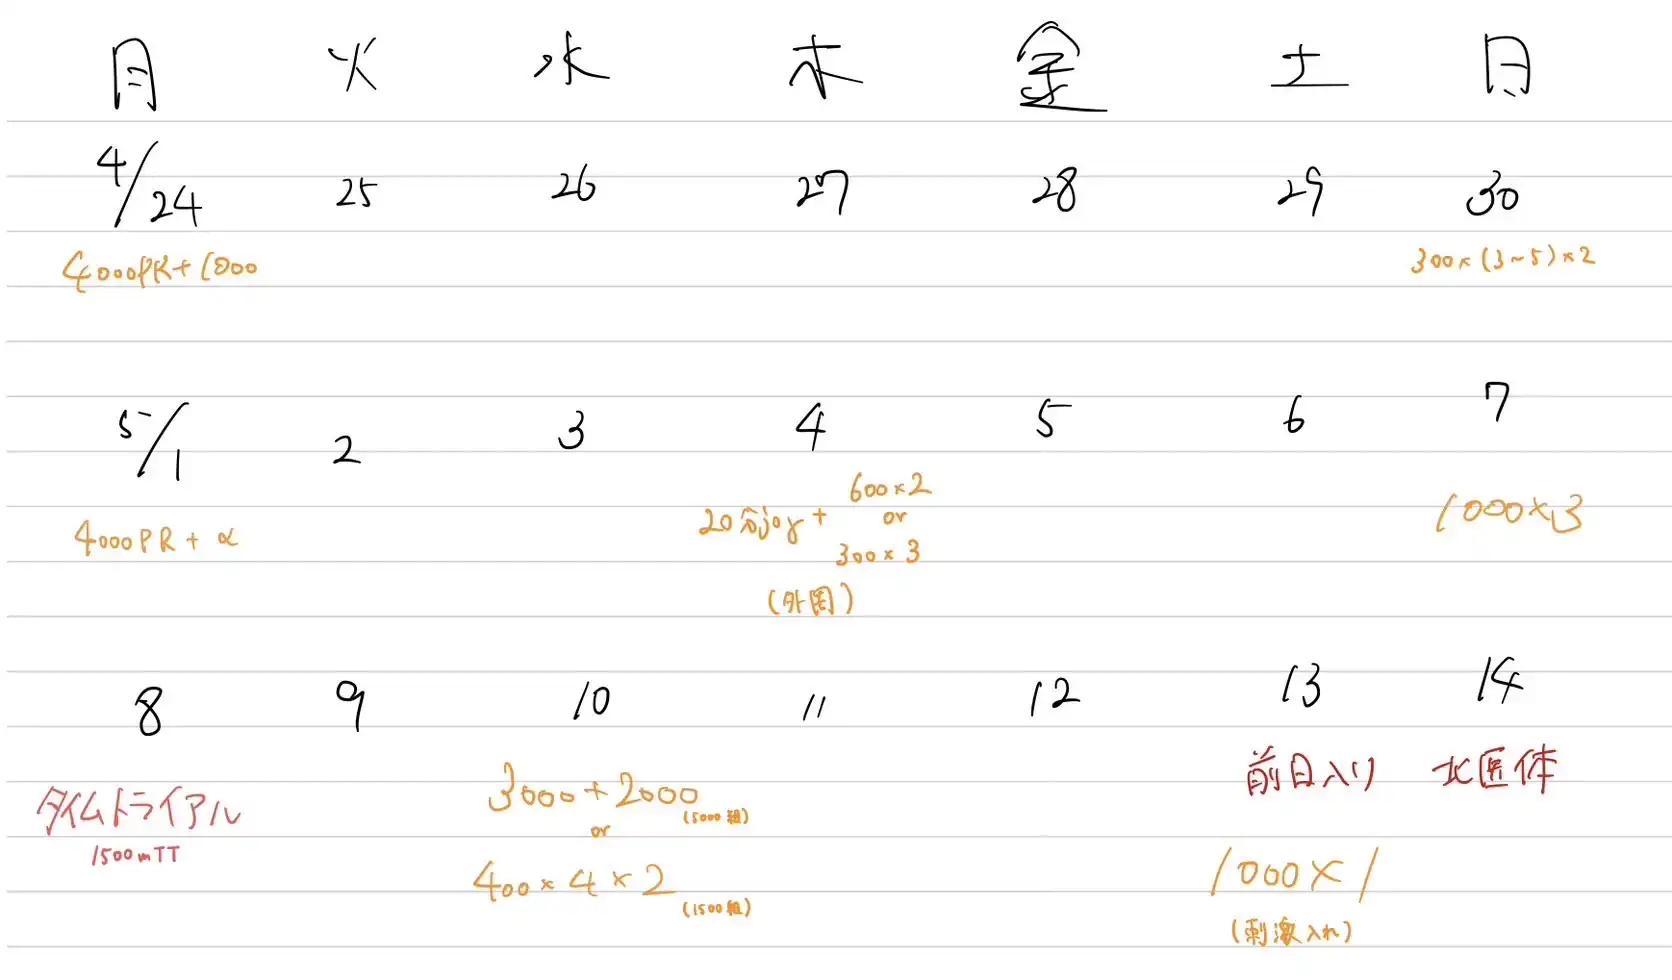 月 火 水 木 金 土 日
4/24 25 26 27 28 29 30
4000PR+1000 300×(3~5)×2
5/1 2 3 4 5 6 7
4000PR+α 20分jog+ 600×2 or 300×3 1000×3
(外周)
8 9 10 11 12 13 14
タイムトライアル 3000+2000 (5000組) 前日入り 北医体
1500mTT or
400×4×2 (1500組) 1000×1
(刺激入れ)